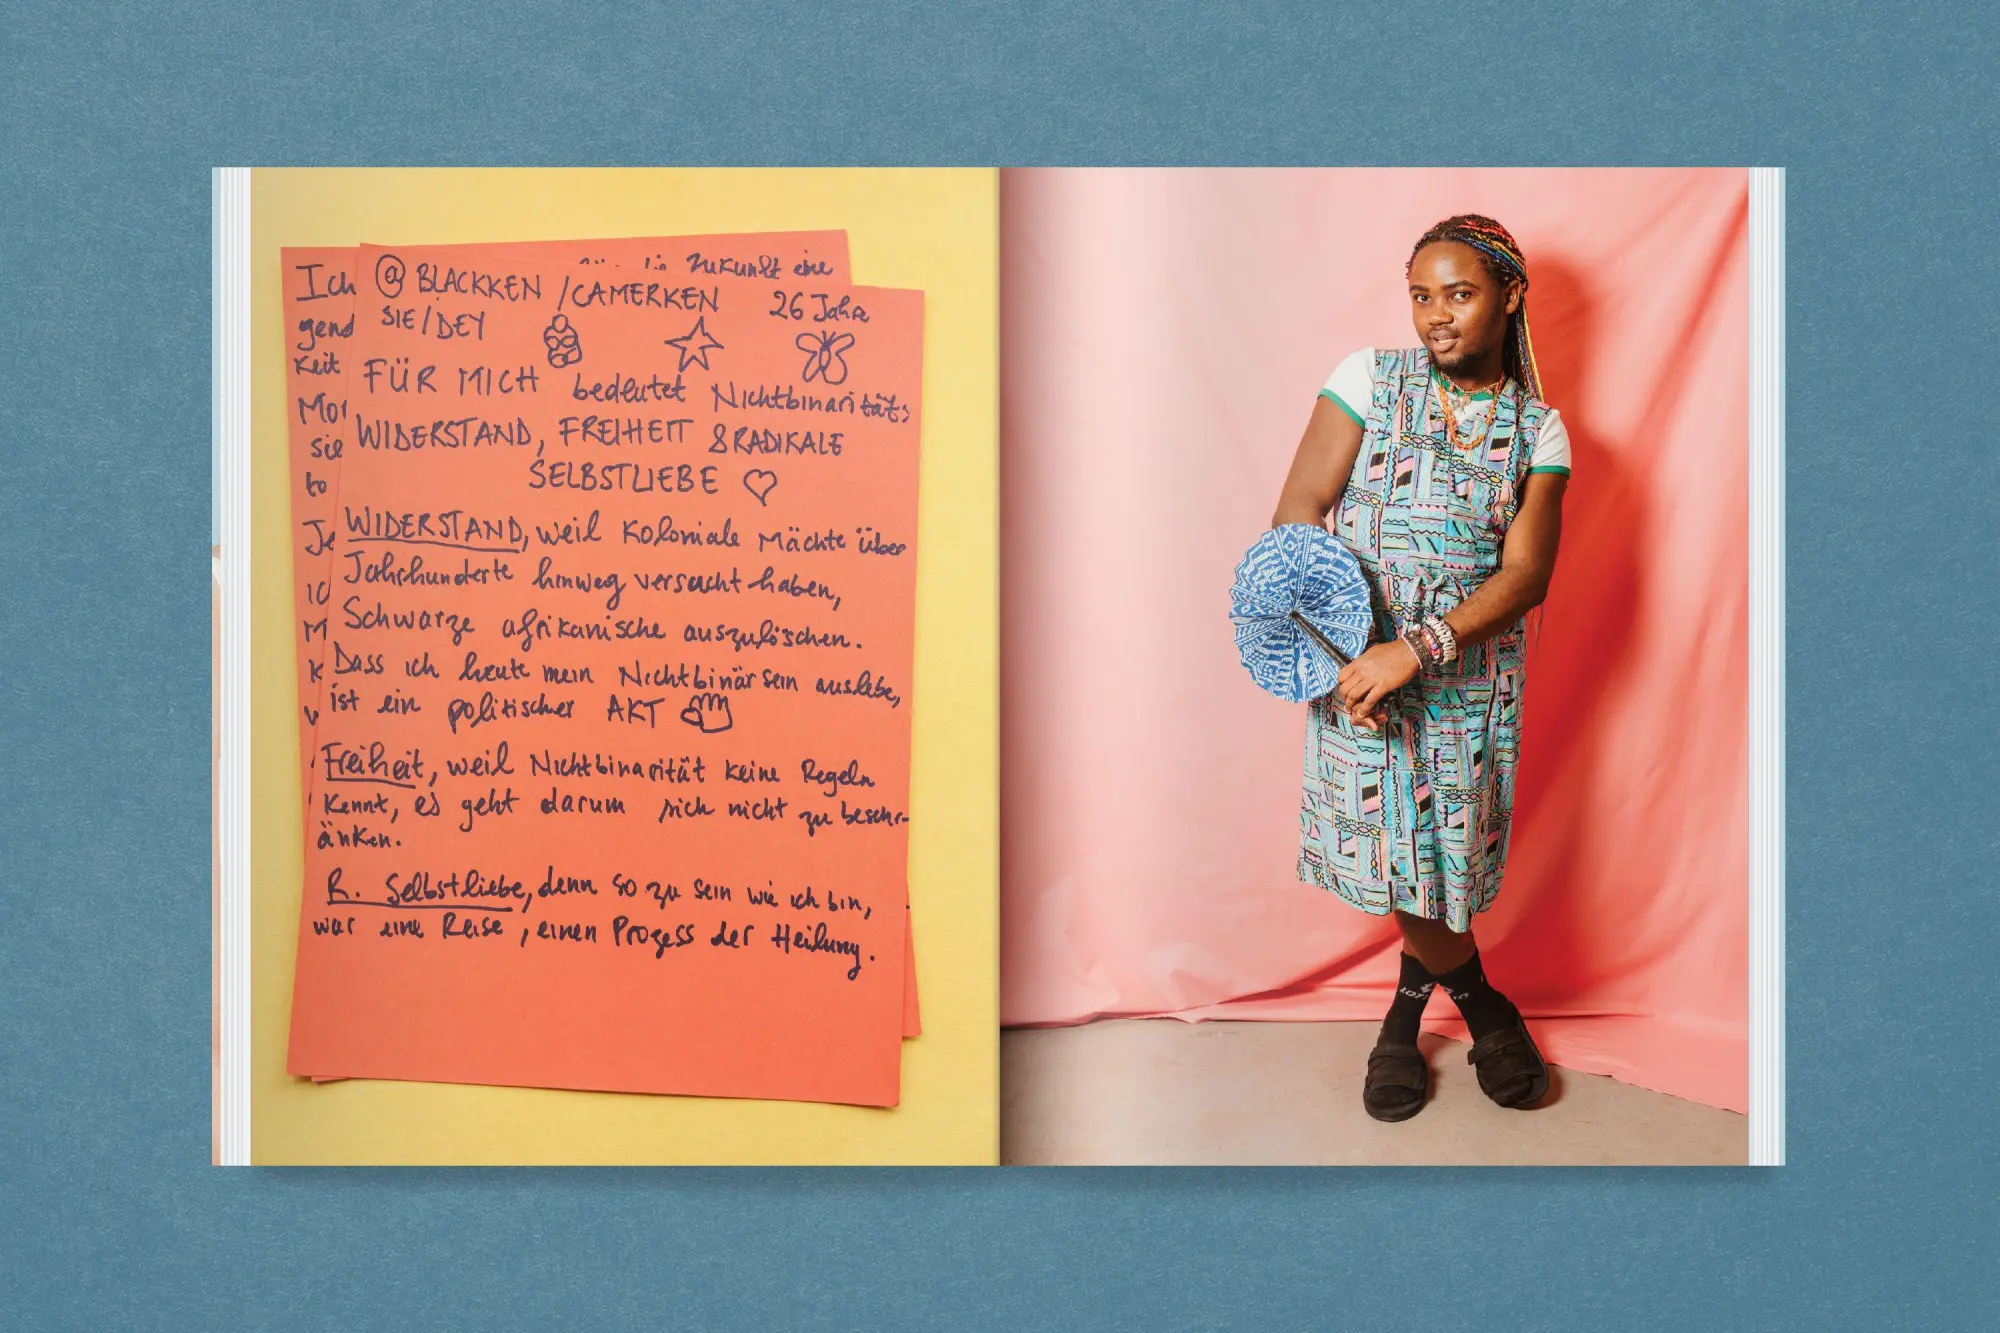 @ BLACKKEN / CAMERKEN 26 Jahre
SIE/DEY
FÜR MICH bedeutet Nichtbinaritäts
WIDERSTAND, FREIHEIT & RADIKALE
SELBSTLIEBE
WIDERSTAND, weil Koloniale Mächte über
Jahrhunderte hinweg versucht haben,
Schwarze afrikanische auszulöschen.
Dass ich heute mein Nichtbinärsein auslebe,
ist ein politischer AKT
Freiheit, weil Nichtbinarität keine Regeln
kennt, es geht darum sich nicht zu beschr-
änken.
R. Selbstliebe, denn so zu sein wie ich bin,
war eine Reise, einen Prozess der Heilung.
Zukunft eine
Ich
gend
keit
sie